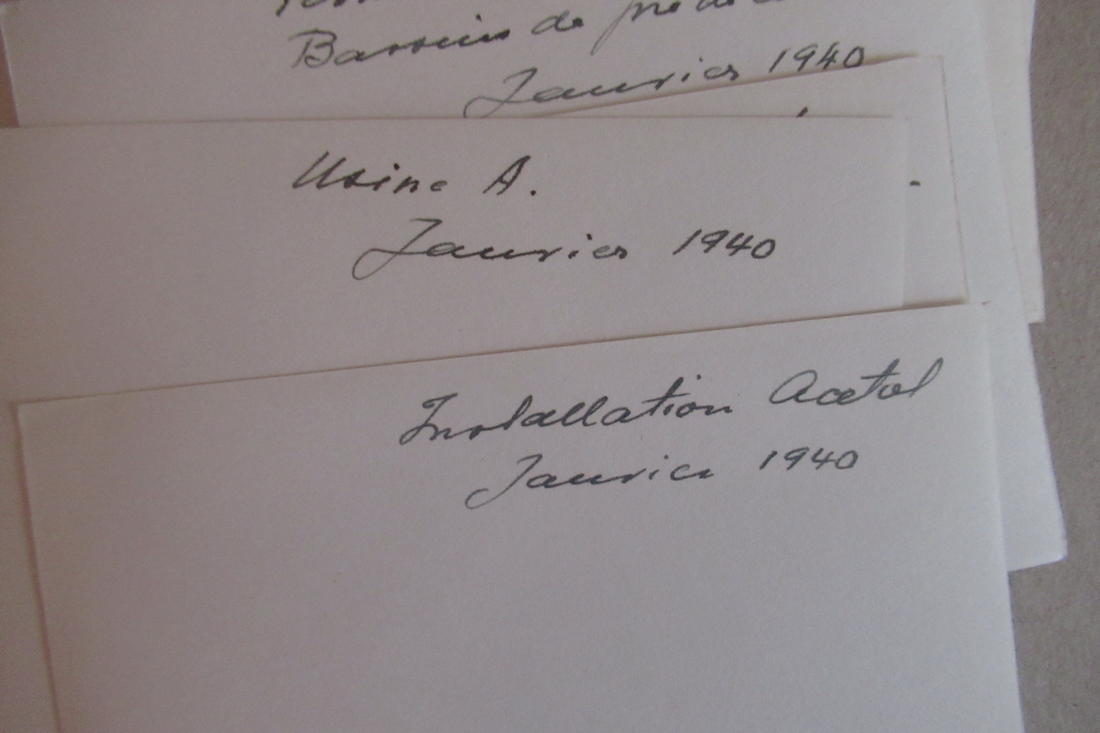 Bassins de
Janvier 1940
Usine A.
Janvier 1940
Installation Acétol
Janvier 1940